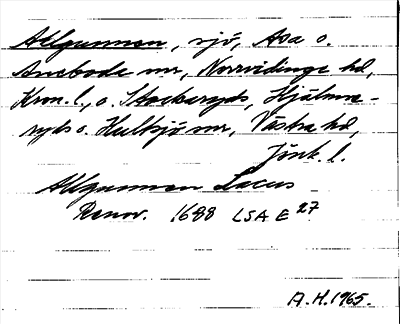 Allgunnen, sjö, Asa o.
Aneboda snr, Norrvidinge hd,
Kron. l., o. Stockaryds, Hjälmse-
ryds o. Hultsjö snr, Västra hd,
Jönk. l.
Allgunnen Lacus
Renov. 1688 LSA E 27
A.H. 1965.